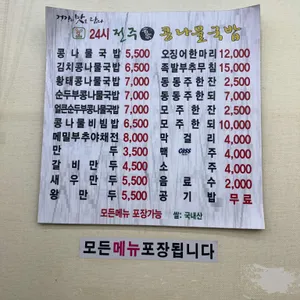 24시 전주 콩나물국밥
콩나물국밥 5,500
김치콩나물국밥 6,500
황태콩나물국밥 7,000
순두부콩나물국밥 7,000
얼큰순두부콩나물국밥 7,000
콩나물비빔밥 6,000
메밀부추야채전 8,000
만두 3,500
갈비만두 4,500
새우만두 5,500
왕만두 5,500
오징어한마리 12,000
족발부추무침 15,000
동동주한잔 2,000
동동주한되 7,000
모주한잔 2,000
모주한되 10,000
막걸리 4,000
맥주 cass 4,000
소주 4,000
음료수 2,000
공기밥 무료
모든메뉴 포장가능 쌀: 국내산
모든메뉴포장됩니다